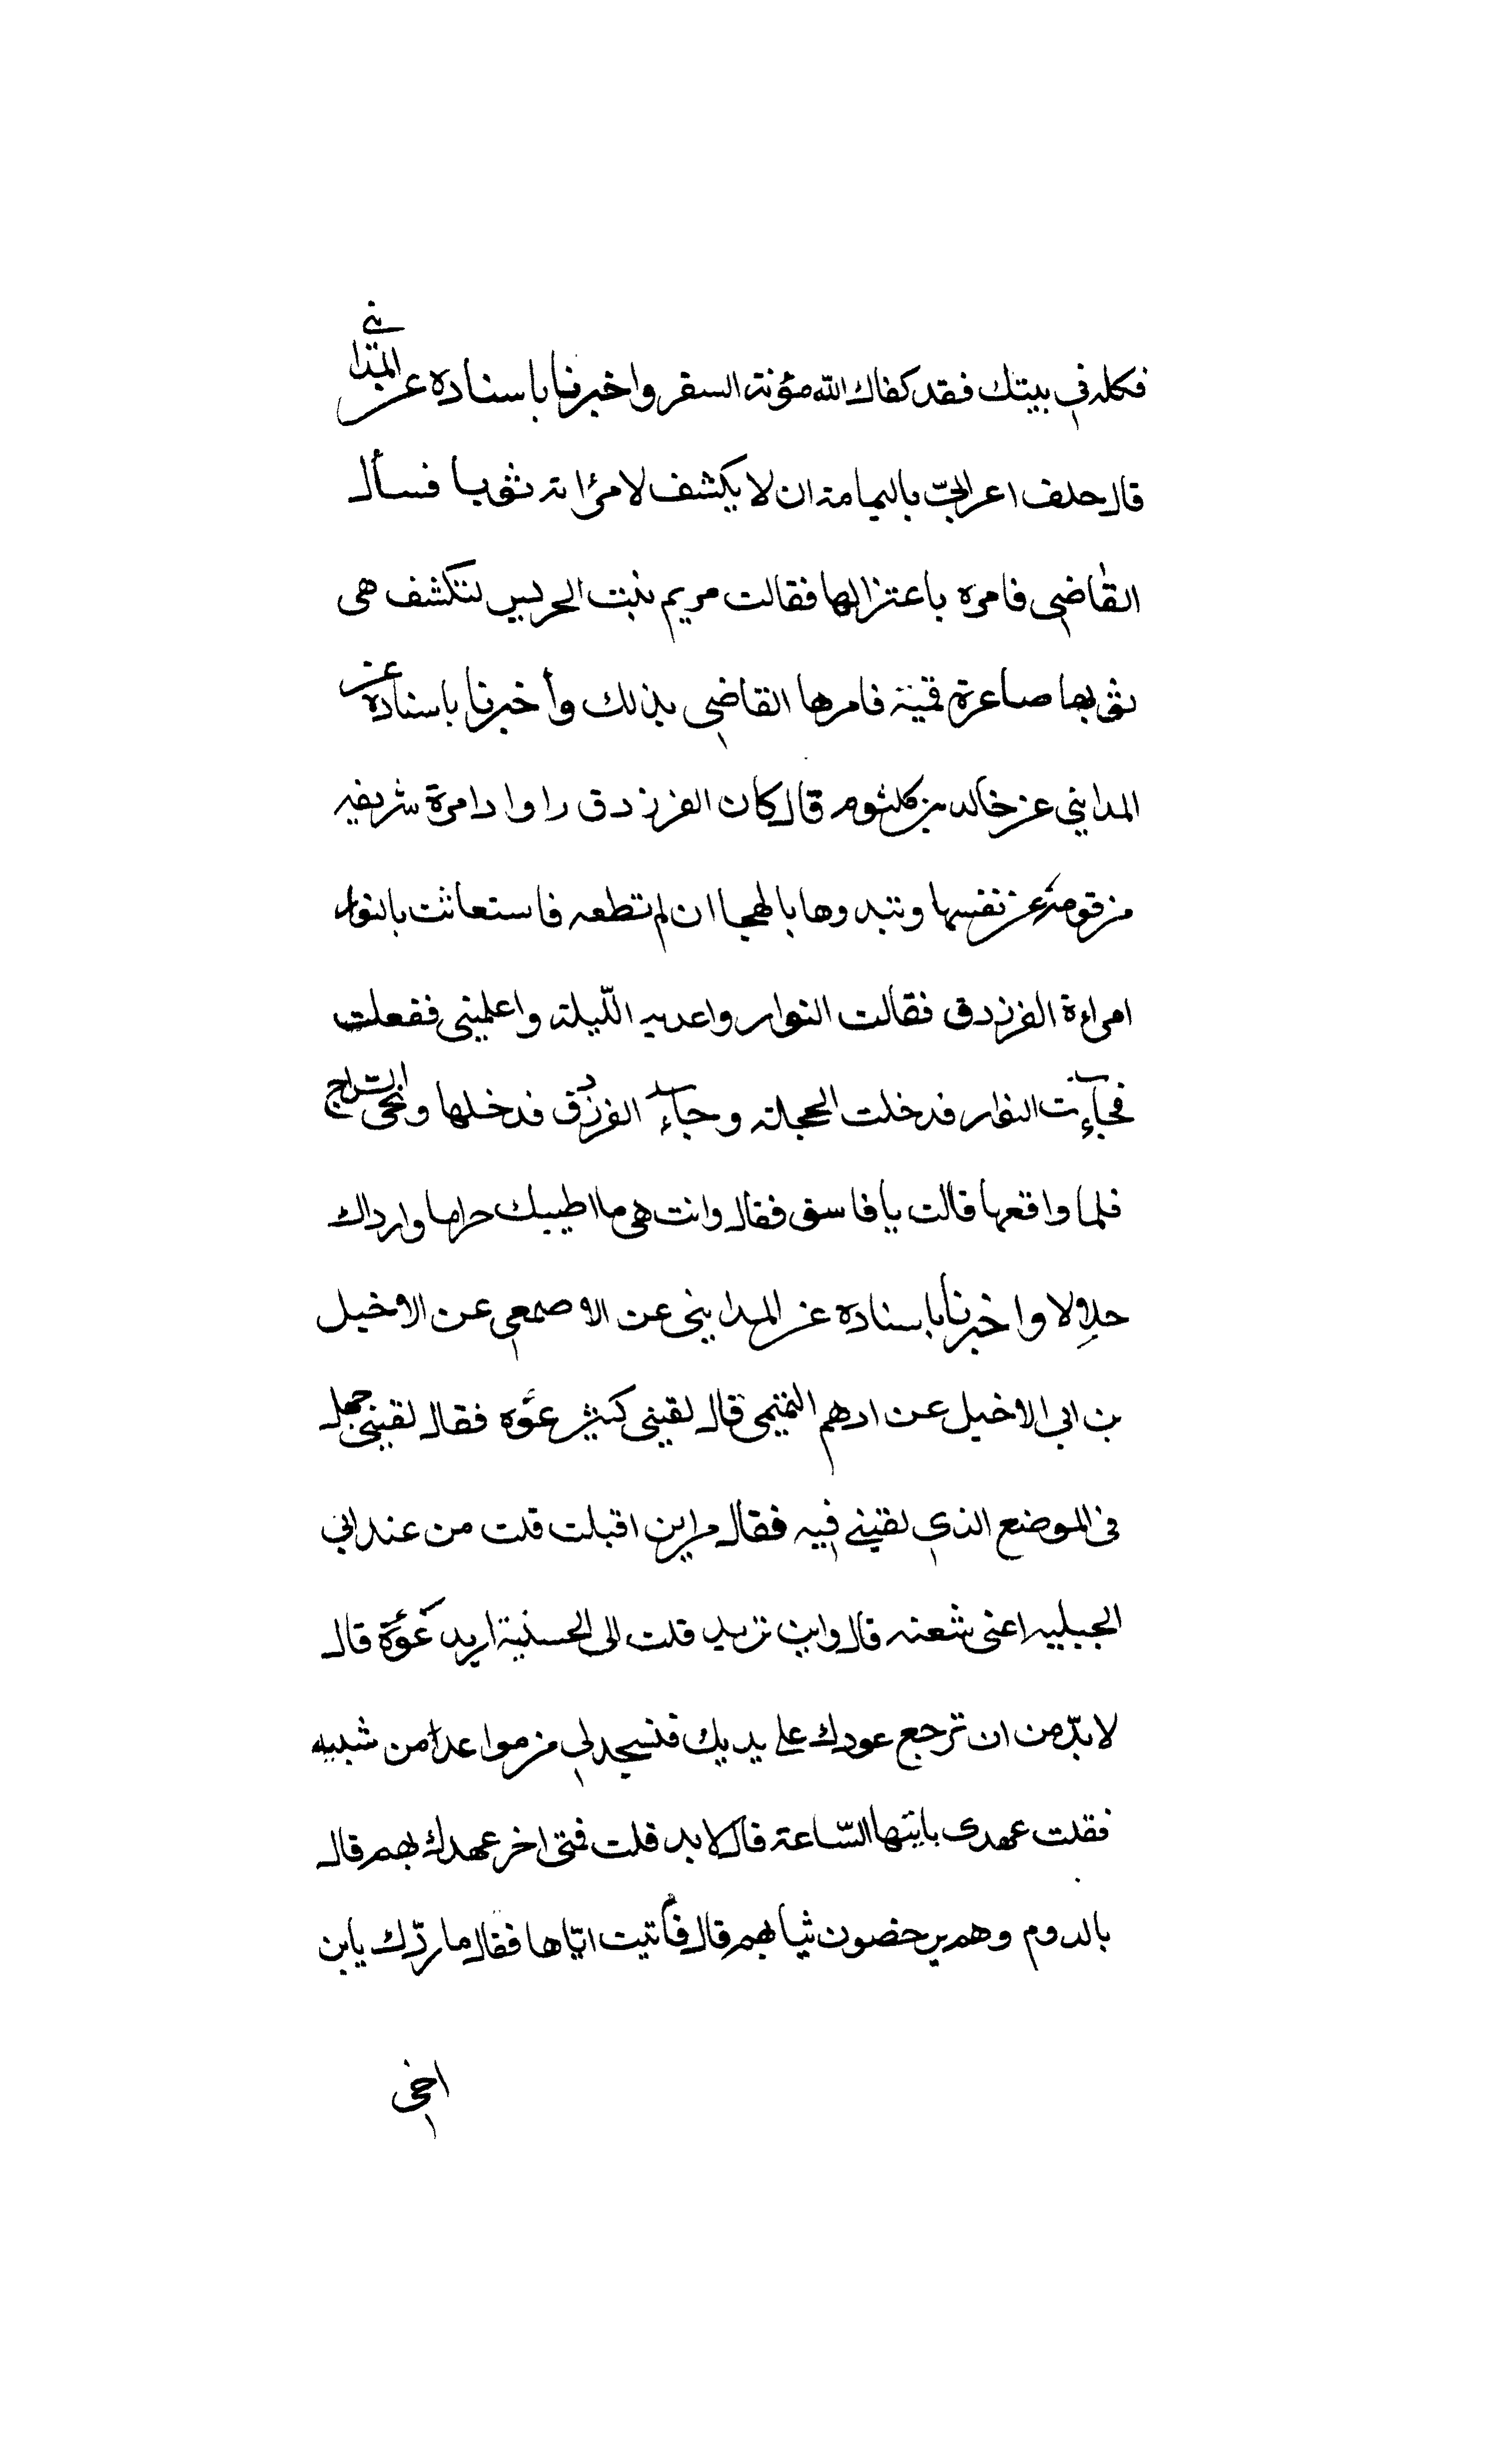 فكله في بيتك فقد كفاك الله مؤنة السفر واخبرنا باسناده عن المدايني
قال حلف اعرابيّ باليمامة ان لا يكشف لامرئاته ثوبا فسأل
القاضي فامره باعتزالها فقالت مريم بنت الحريس لتكشف هى
ثوبها صاغرة قمئة فامرها القاضي بذلك وأخبرنا باسناده عن
المدايني عن خالد بن كلثوم قال كان الفرزدق راوا دامرة شريفه
من قومه عن نفسها وتبدوها بالهجا ان لم تطعه فاستعانت بالنوار
امراءة الفرزدق فقالت النوار واعديه اللّيلة واعلميني ففعلت
فجآءت النوار فدخلت الحجلة وجآء الفرزدق فدخلها ونحى السّراج
فلما واقعها قالت يا فاسق فقال وانت هى ما اطيبك حراما وارداك
حلالا واخبرنا باسناده عن المدايني عن الاصمعي عن الاخيل
بن ابي الاخيل عن ادهم التميمي قال لقيني كثير عزّه فقال لقيني جميل
في الموضع الذي لقيني فيه فقال من اين اقبلت قلت من عند ابي
الجبليه اعنى شعنه قال واين تريد قلت الى الحسنية اريد عزّة قال
لا بدّ من ان ترجع عودك على يديك فتسجد لي من مواعدا من شبيه
فقلت عهدى بابيها السّاعة قال لا بد قلت فمتى اخر عهدك بهم قال
بالدوم وهم يرحضون ثيابهم قال فأتيت ايّاها فقال ما ردّك يابن
اخي